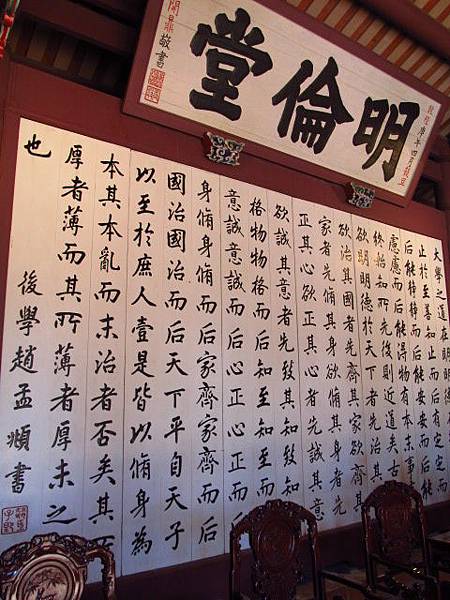 明倫堂
敬書
大學之道在明明德
止於至善知止而后有定定而
后能靜靜而后能安安而后能
慮慮而后能得物有本末事
終始知所先後則近道矣古
欲明明德於天下者先治其
欲治其國者先齊其家欲齊其
家者先脩其身欲脩其身者先
正其心欲正其心者先誠其意
欲誠其意者先致其知致知
格物物格而后知至知至
意誠意誠而后心正心正而后
身脩身脩而后家齊家齊而后
國治國治而后天下平自天子
以至於庶人壹是皆以脩身為
本其本亂而末治者否矣其
厚者薄而其所薄者厚未之
也
後學趙孟頫書